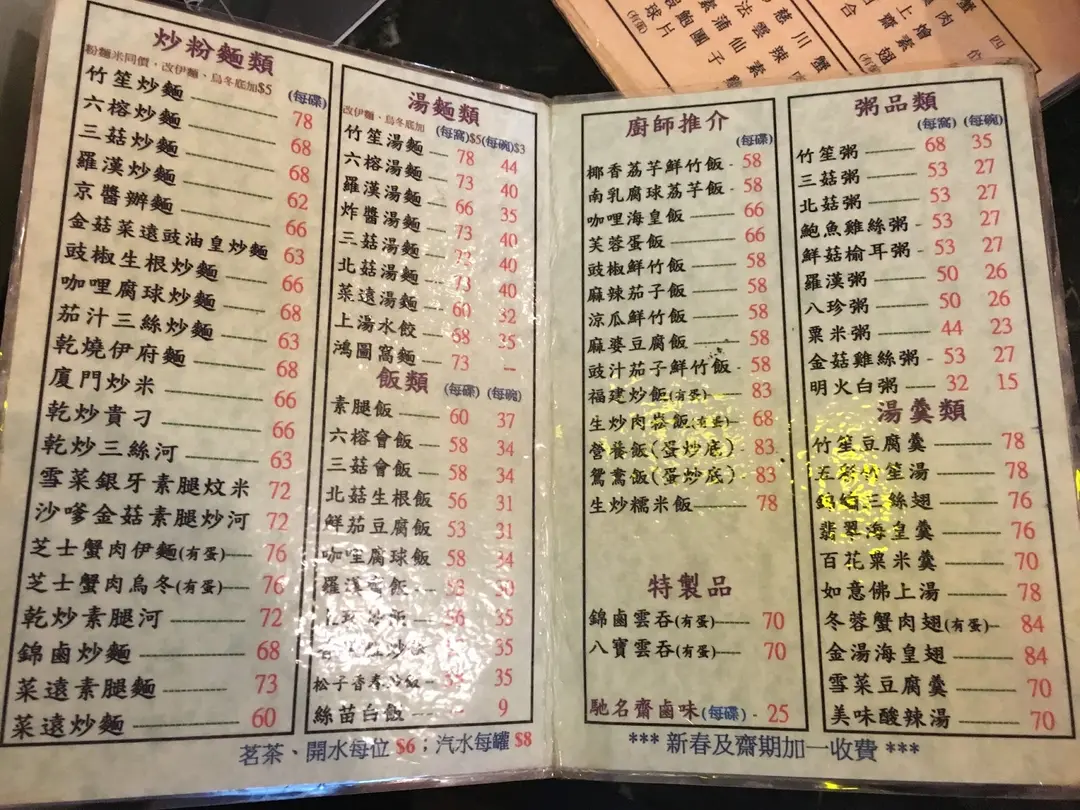 炒粉麵類
粉麵米同價，改伊麵、烏冬底加$5
(每碟)
竹笙炒麵 78
六榕炒麵 68
三菇炒麵 68
羅漢炒麵 62
京醬辦麵 66
金菇菜遠豉油皇炒麵 63
豉椒生根炒麵 66
咖哩腐球炒麵 68
茄汁三絲炒麵 63
乾燒伊府麵 68
廈門炒米 66
乾炒貴刁 66
乾炒三絲河 63
雪菜銀牙素腿炆米 72
沙嗲金菇素腿炒河 72
芝士蟹肉伊麵(有蛋) 76
芝士蟹肉烏冬(有蛋) 76
乾炒素腿河 72
錦鹵炒麵 68
菜遠素腿麵 73
菜遠炒麵 60
湯麵類
改伊麵、烏冬底加 (每窩)$5(每碗)$3
竹笙湯麵 78 44
六榕湯麵 73 40
羅漢湯麵 66 35
炸醬湯麵 73 40
三菇湯麵 40
北菇湯麵 73 40
菜遠湯麵 60 32
上湯水餃 68 35
鴻圖窩麵 73 –
飯類 (每碟) (每碗)
素腿飯 60 37
六榕會飯 58 34
三菇會飯 58 34
北菇生根飯 56 31
鮮茄豆腐飯 53 31
咖哩腐球飯 58 34
羅漢 飯 53 30
56 35
35
松子香 飯 35
絲苗白飯 – 9
茗茶、開水每位 $6；汽水每罐 $8
廚師推介
(每碟)
椰香荔芋鮮竹飯 - 58
南乳腐球荔芋飯 - 58
咖哩海皇飯 66
芙蓉蛋飯 66
豉椒鮮竹飯 58
麻辣茄子飯 58
涼瓜鮮竹飯 58
麻婆豆腐飯 58
豉汁茄子鮮竹飯 - 58
福建炒飯(有蛋) 83
生炒肉崧飯(有蛋) 68
營養飯(蛋炒底) 83
鴛鴦飯(蛋炒底) 83
生炒糯米飯 78
特製品
錦鹵雲吞(有蛋) 70
八寶雲吞(有蛋) 70
馳名齋鹵味(每碟) - 25
粥品類
(每窩) (每碗)
竹笙粥 68 35
三菇粥 53 27
北菇粥 53 27
鮑魚雞絲粥 - 53 27
鮮菇榆耳粥 - 53 27
羅漢粥 50 26
八珍粥 50 26
粟米粥 44 23
金菇雞絲粥 - 53 27
明火白粥 32 15
湯羹類
竹笙豆腐羹 78
竹笙湯 78
三絲翅 76
翡翠海皇羹 76
百花粟米羹 70
如意佛上湯 78
冬蓉蟹肉翅(有蛋) 84
金湯海皇翅 84
雪菜豆腐羹 70
美味酸辣湯 70
*** 新春及齋期加一收費 ***